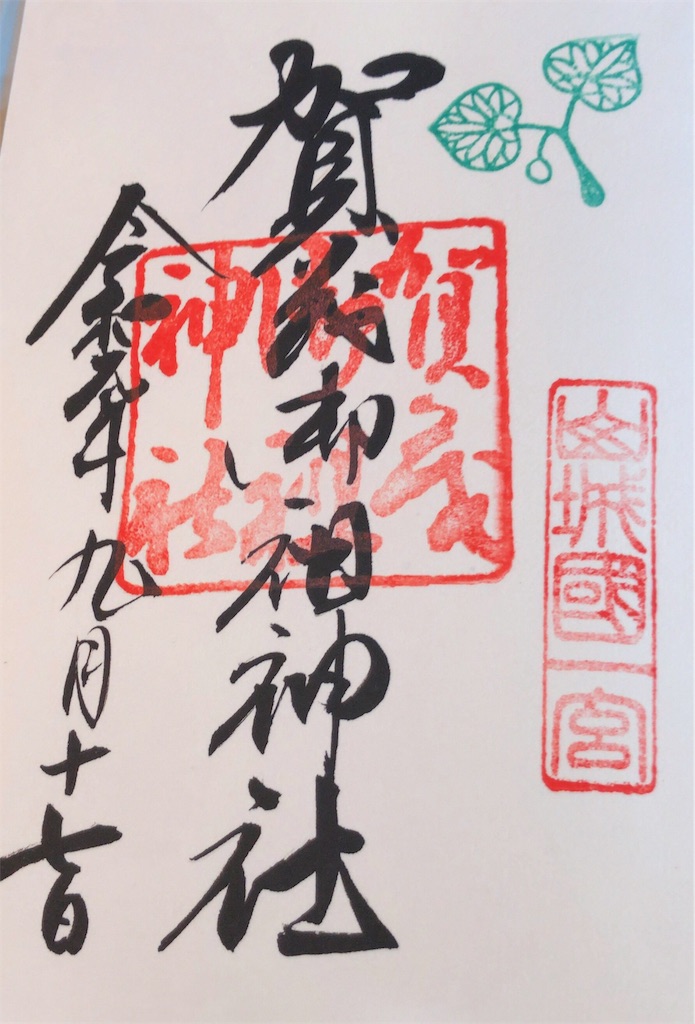 山城國一宮
賀茂御祖神社
賀茂
御祖
神社
令和元年九月十七日